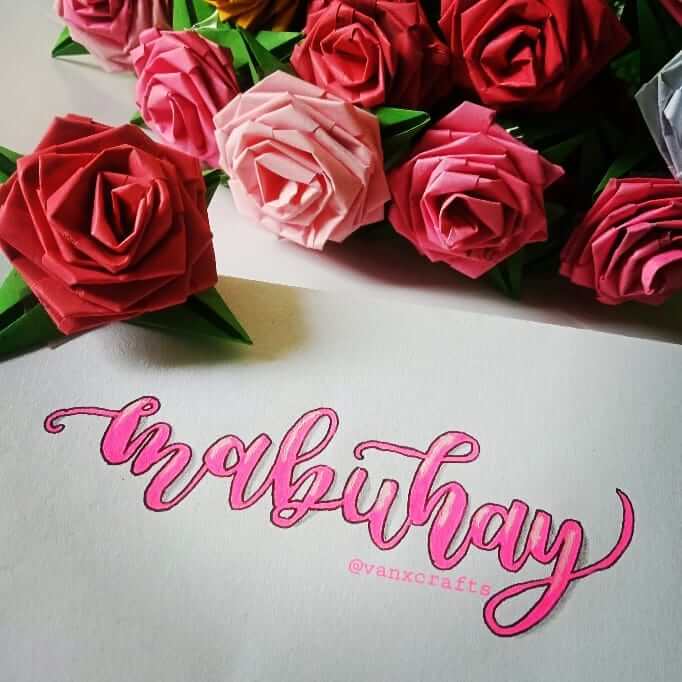 mabuhay
@vanxcrafts